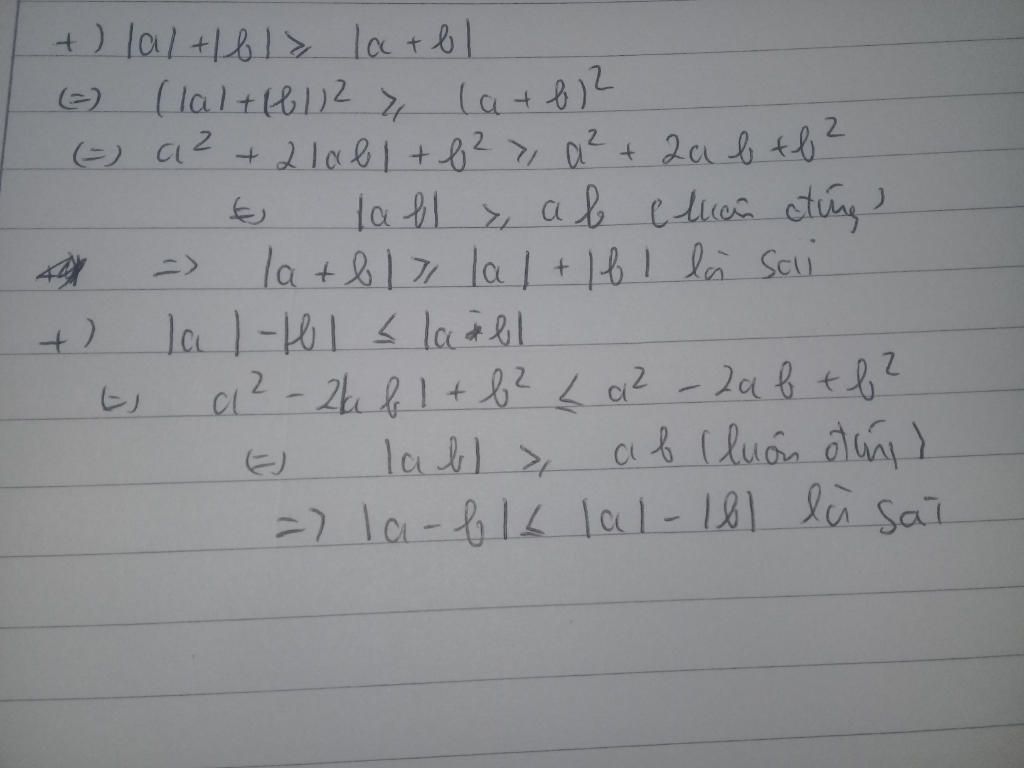 +) |a| + |b| ≥ |a + b|
(=) (|a| + |b|)² ≥ (a + b)²
(=) a² + 2|ab| + b² ≥ a² + 2ab + b²
(=) |ab| ≥ ab (luôn đúng)
=> |a + b| ≥ |a| + |b| là sai
+) |a| - |b| ≤ |a - b|
(=) a² - 2|ab| + b² ≤ a² - 2ab + b²
(=) |ab| ≥ ab (luôn đúng)
=> |a - b| ≤ |a| - |b| là sai